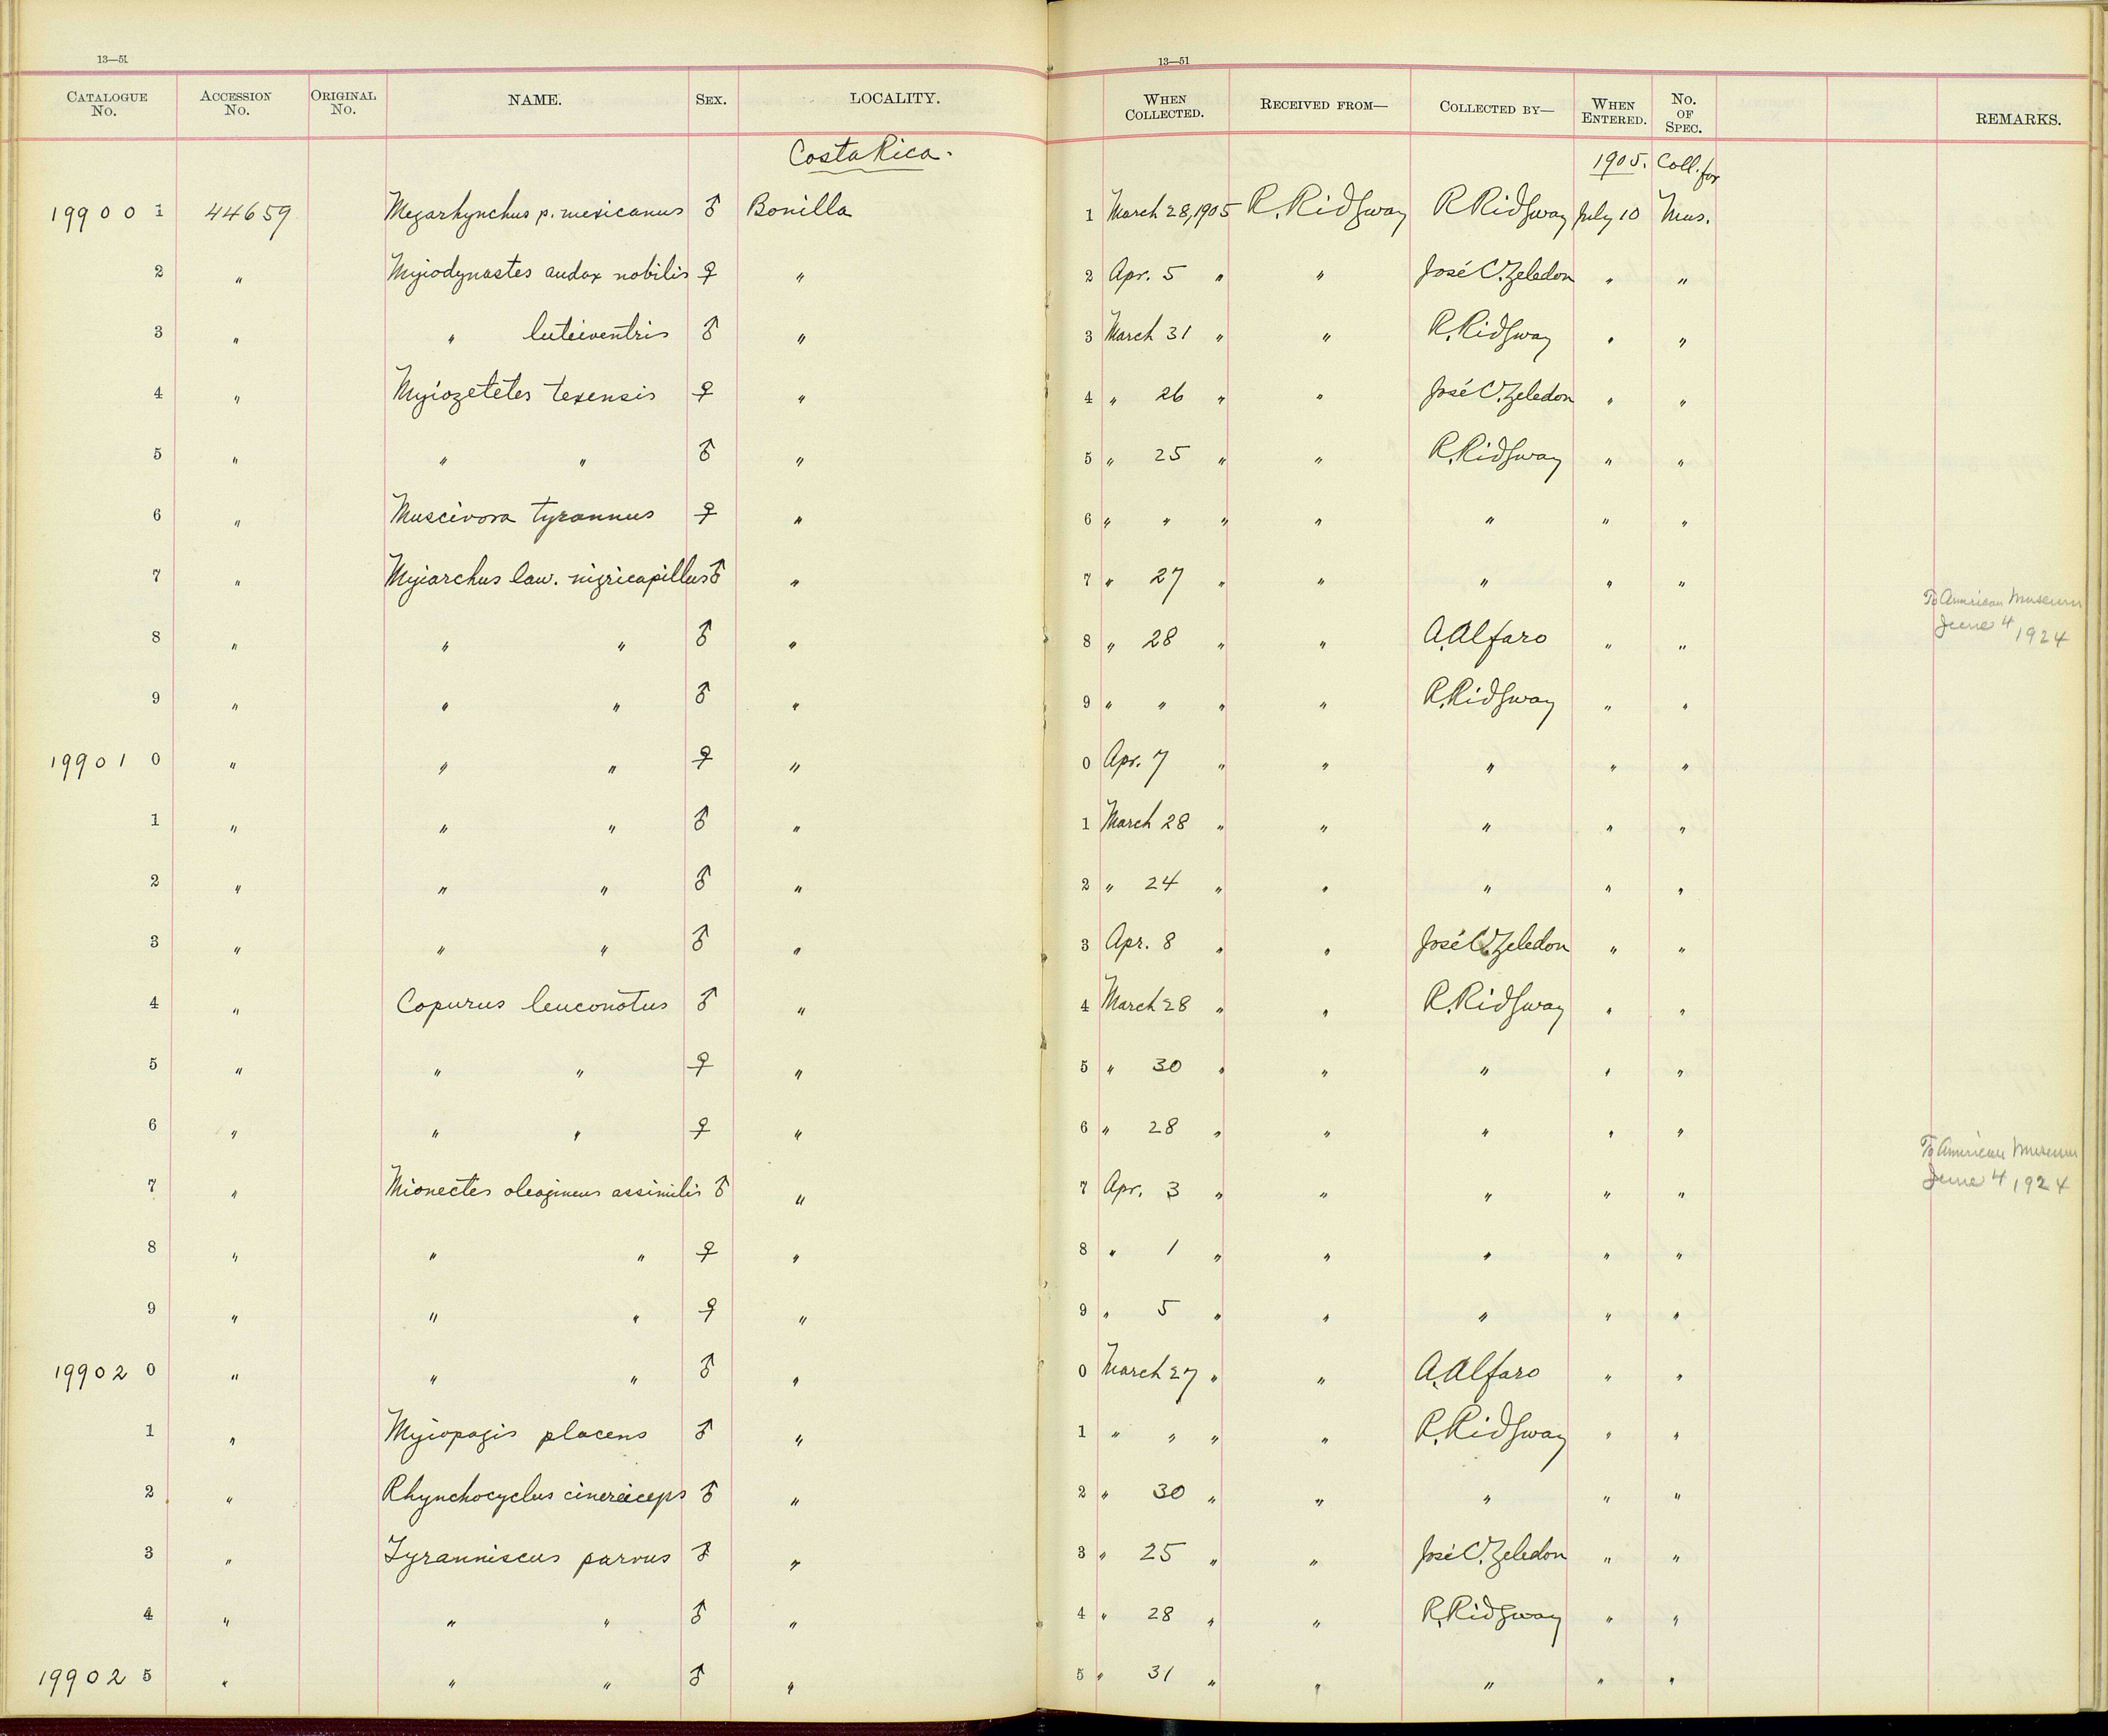 13—51 13—51
CATALOGUE No. ACCESSION No. ORIGINAL No. NAME. SEX. LOCALITY. WHEN COLLECTED. RECEIVED FROM— COLLECTED BY— WHEN ENTERED. No. OF SPEC. REMARKS.
Costa Rica. 1905. Coll. for
19900 1 44659 Megarhynchus p. mexicanus ♂ Bonilla 1 March 28, 1905 R. Ridgway R Ridgway July 10 Mus.
2 " Myiodynastes audax nobilis ♀ " 2 Apr. 5 " " José C. Zeledon " "
3 " " luteiventris ♂ " 3 March 31 " " R. Ridgway " "
4 " Myiozetetes texensis ♀ " 4 " 26 " " José C. Zeledon " "
5 " " " ♂ " 5 " 25 " " R. Ridgway " "
6 " Muscivora tyrannus ♀ " 6 " " " " " " "
7 " Myiarchus law. nigricapillus ♂ " 7 " 27 " " " " "
8 " " " ♂ " 8 " 28 " " A. Alfaro " " To American Museum June 4 1924
9 " " " ♂ " 9 " " " " R. Ridgway " "
19901 0 " " " ♀ " 0 Apr. 7 " " " " "
1 " " " ♂ " 1 March 28 " " " " "
2 " " " ♂ " 2 " 24 " " " " "
3 " " " ♂ " 3 Apr. 8 " " José C. Zeledon " "
4 " Copurus leuconotus ♂ " 4 March 28 " " R. Ridgway " "
5 " " " ♀ " 5 " 30 " " " " "
6 " " " ♀ " 6 " 28 " " " " "
7 " Mionectes oleagineus assimilis ♂ " 7 Apr. 3 " " " " " To American Museum June 4 1924
8 " " " ♀ " 8 " 1 " " " " "
9 " " " ♀ " 9 " 5 " " " " "
19902 0 " " " ♂ " 0 March 27 " " A. Alfaro " "
1 " Myiopagis placens ♂ " 1 " " " " R. Ridgway " "
2 " Rhynchocyclus cinereiceps ♂ " 2 " 30 " " " " "
3 " Tyranniscus parvus ♂ " 3 " 25 " " José C. Zeledon " "
4 " " " ♂ " 4 " 28 " " R. Ridgway " "
19902 5 " " " ♂ " 5 " 31 " " " " "